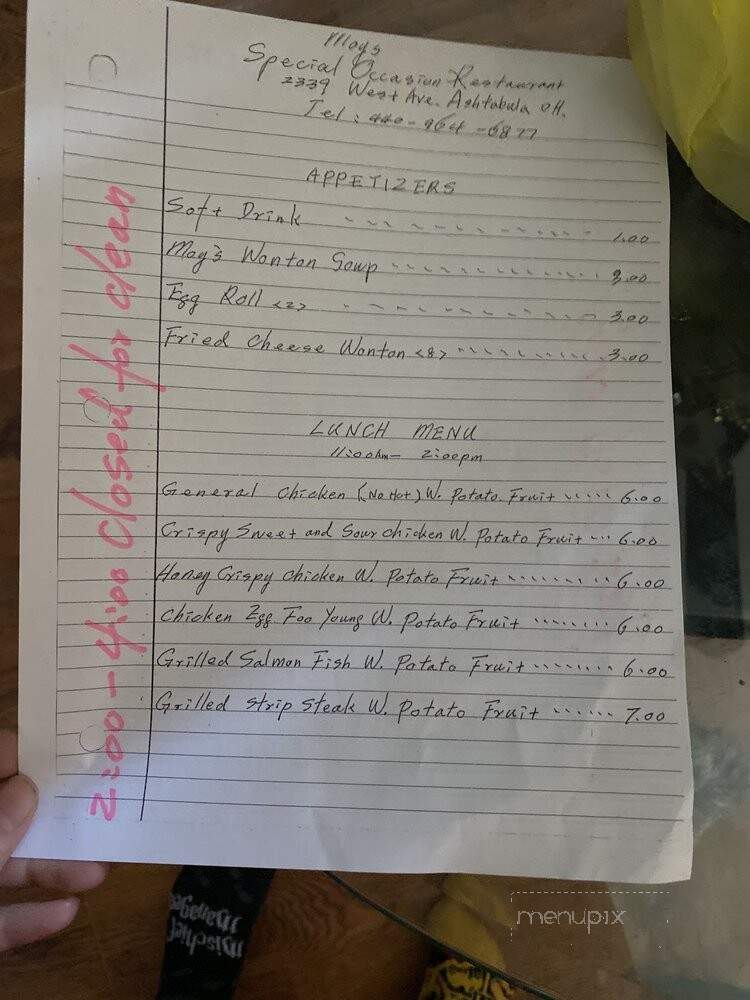 Moys
Special Occasion Restaurant
2339 West Ave. Ashtabula OH.
Tel : 440-964-6877
APPETIZERS
Soft Drink ............ 1.00
Moy's Wonton Soup ............ 3.00
Egg Roll <2> ............ 3.00
Fried Cheese Wonton <8> ............ 3.00
LUNCH MENU
11:00Am - 2:00pm
General Chicken (No Hot) W. Potato Fruit ...... 6.00
Crispy Sweet and Sour chicken W. Potato Fruit ... 6.00
Honey Crispy chicken W. Potato Fruit ......... 6.00
Chicken Egg Foo Young W. Potato Fruit ........ 6.00
Grilled Salmon Fish W. Potato Fruit ........ 6.00
Grilled strip steak W. Potato Fruit ...... 7.00
2:00 - 4:00 closed for clean
mischief
managed
menupix